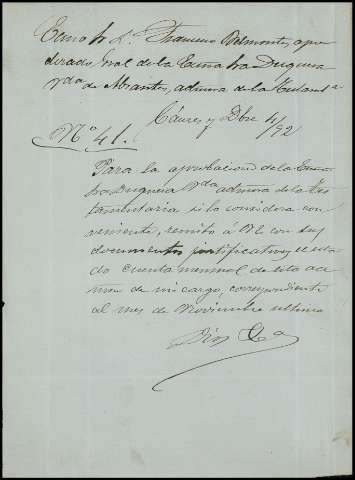 Exmo Sr. Dn. Francisco Belmonte, apo
derado gral de la Exma Sra Duquesa
Vda de Abrantes, admora de la Testamta
Cáceres y Dbre 4/92
No 41.
Para la aprobacion de la Exma
Sra Duquesa Vda admora de la Tes
tamentaria si lo considera con
veniente, remito á VE con sus
documentos justificativos el esta
do cuenta mensual de esta ad
mon de mi cargo, correspondiente
al mes de Noviembre ultimo
Dios &a